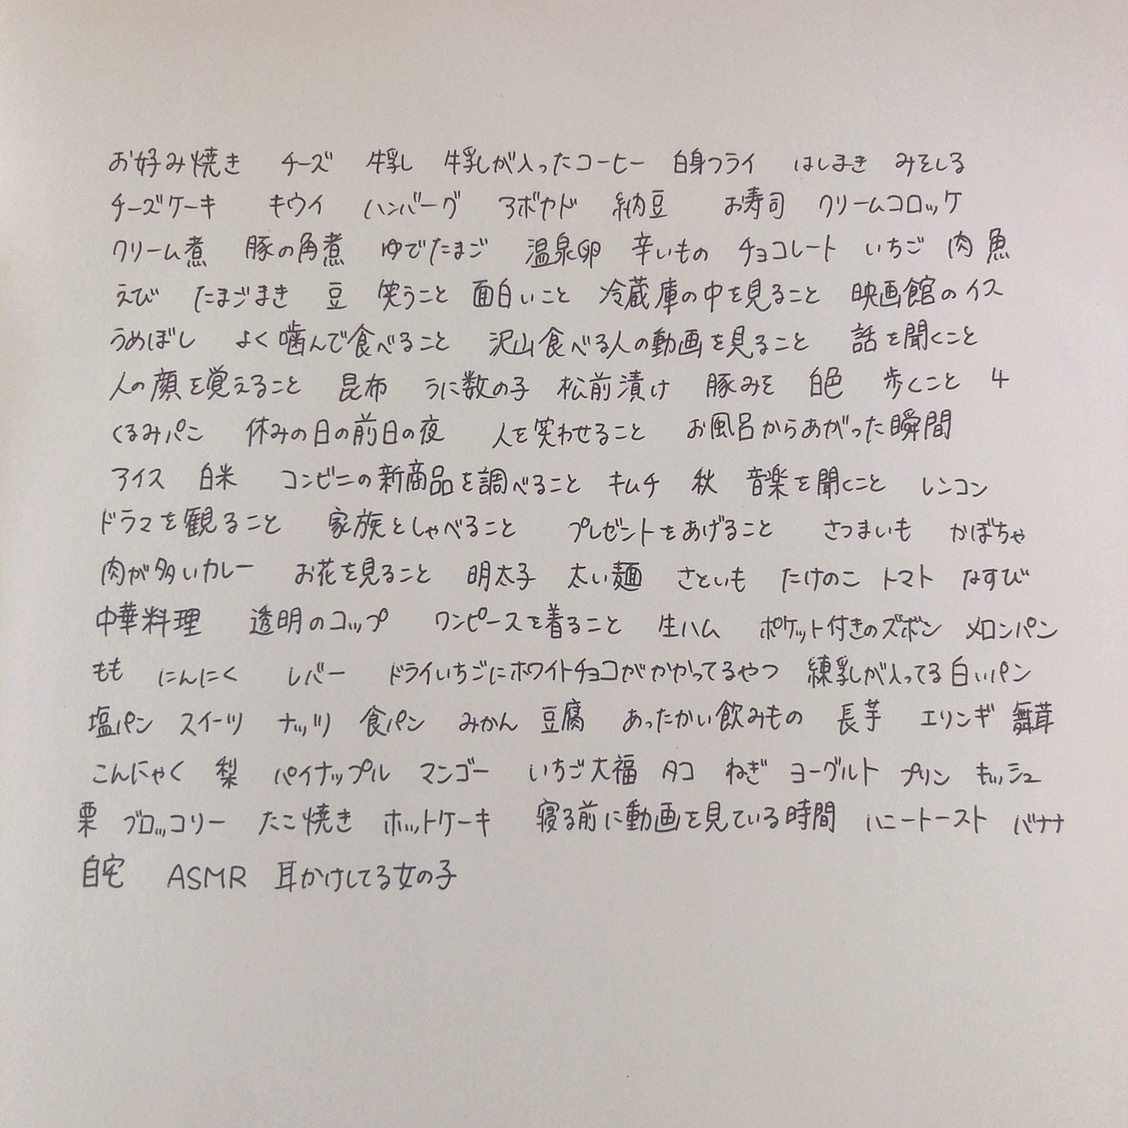 お好み焼き チーズ 牛乳 牛乳が入ったコーヒー 白身フライ はしまき みそしる
チーズケーキ キウイ ハンバーグ アボカド 納豆 お寿司 クリームコロッケ
クリーム煮 豚の角煮 ゆでたまご 温泉卵 辛いもの チョコレート いちご 肉 魚
えび たまごまき 豆 笑うこと 面白いこと 冷蔵庫の中を見ること 映画館のイス
うめぼし よく噛んで食べること 沢山食べる人の動画を見ること 話を聞くこと
人の顔を覚えること 昆布 うに数の子 松前漬け 豚みそ 白色 歩くこと 4
くるみパン 休みの日の前日の夜 人を笑わせること お風呂からあがった瞬間
アイス 白米 コンビニの新商品を調べること キムチ 秋 音楽を聞くこと レンコン
ドラマを観ること 家族としゃべること プレゼントをあげること さつまいも かぼちゃ
肉が多いカレー お花を見ること 明太子 太い麺 さといも たけのこ トマト なすび
中華料理 透明のコップ ワンピースを着ること 生ハム ポケット付きのズボン メロンパン
もも にんにく レバー ドライいちごにホワイトチョコがかかってるやつ 練乳が入ってる白いパン
塩パン スイーツ ナッツ 食パン みかん 豆腐 あったかい飲みもの 長芋 エリンギ 舞茸
こんにゃく 梨 パイナップル マンゴー いちご大福 タコ ねぎ ヨーグルト プリン キッシュ
栗 ブロッコリー たこ焼き ホットケーキ 寝る前に動画を見ている時間 ハニートースト バナナ
自宅 ASMR 耳かけしてる女の子